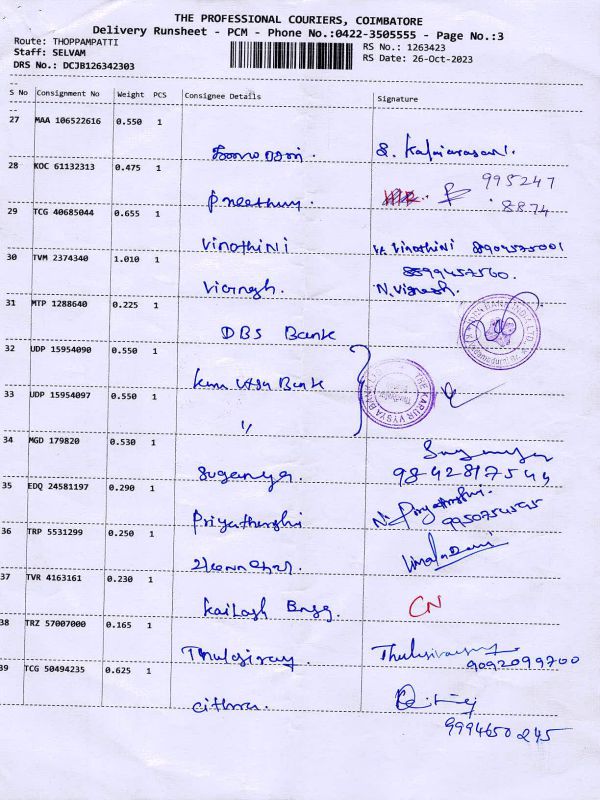 THE PROFESSIONAL COURIERS, COIMBATORE
Delivery Runsheet - PCM - Phone No.:0422-3505555 - Page No.:3
Route: THOPPAMPATTI
RS No.: 1263423
Staff: SELVAM
RS Date: 26-Oct-2023
DRS No.: DCJB126342303
S No Consignment No Weight PCS Consignee Details Signature
27 MAA 106522616 0.550 1
S. Kalaiarasani.
28 KOC 61132313 0.475 1
Preethy. 995247
8874
29 TCG 40685044 0.655 1
VinothiNi Vinothini 8904575001
30 TVM 2374340 1.010 1
8599457560.
Vignesh. N. Vignesh.
31 MTP 1288640 0.225 1
DBS Bank
32 UDP 15954090 0.550 1
Karur Vysya Bank THE KARUR VYSYA BANK LTD
33 UDP 15954097 0.550 1
"
34 MGD 179820 0.530 1
Suganya. 9842817544
35 EDQ 24581197 0.290 1
Priyatharshi N. Priyatharshi.
36 TRP 5531299 0.250 1
VimalaDevi
37 TVR 4163161 0.230 1
Kailash Bngg. CN
38 TRZ 57007000 0.165 1
Thulasiraj. Thulasiraj
9092099700
39 TCG 50494235 0.625 1
Cithra.
9994650245